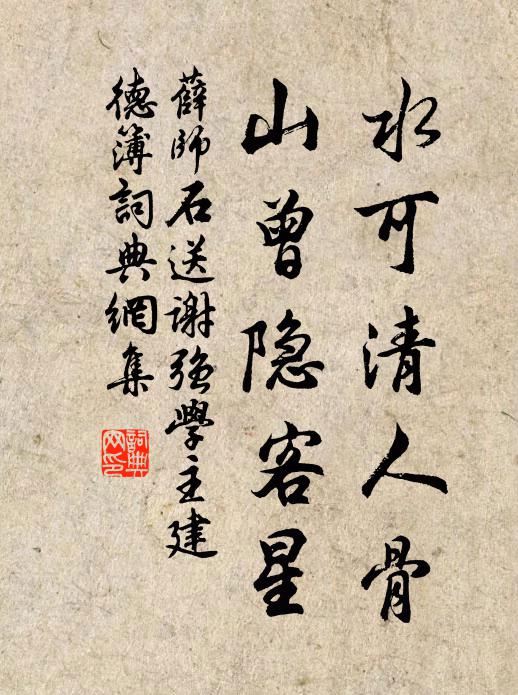 水可清人骨
山曾隐客星
薛师石送谢强学主建
德簿詞典網集
詞典
网印